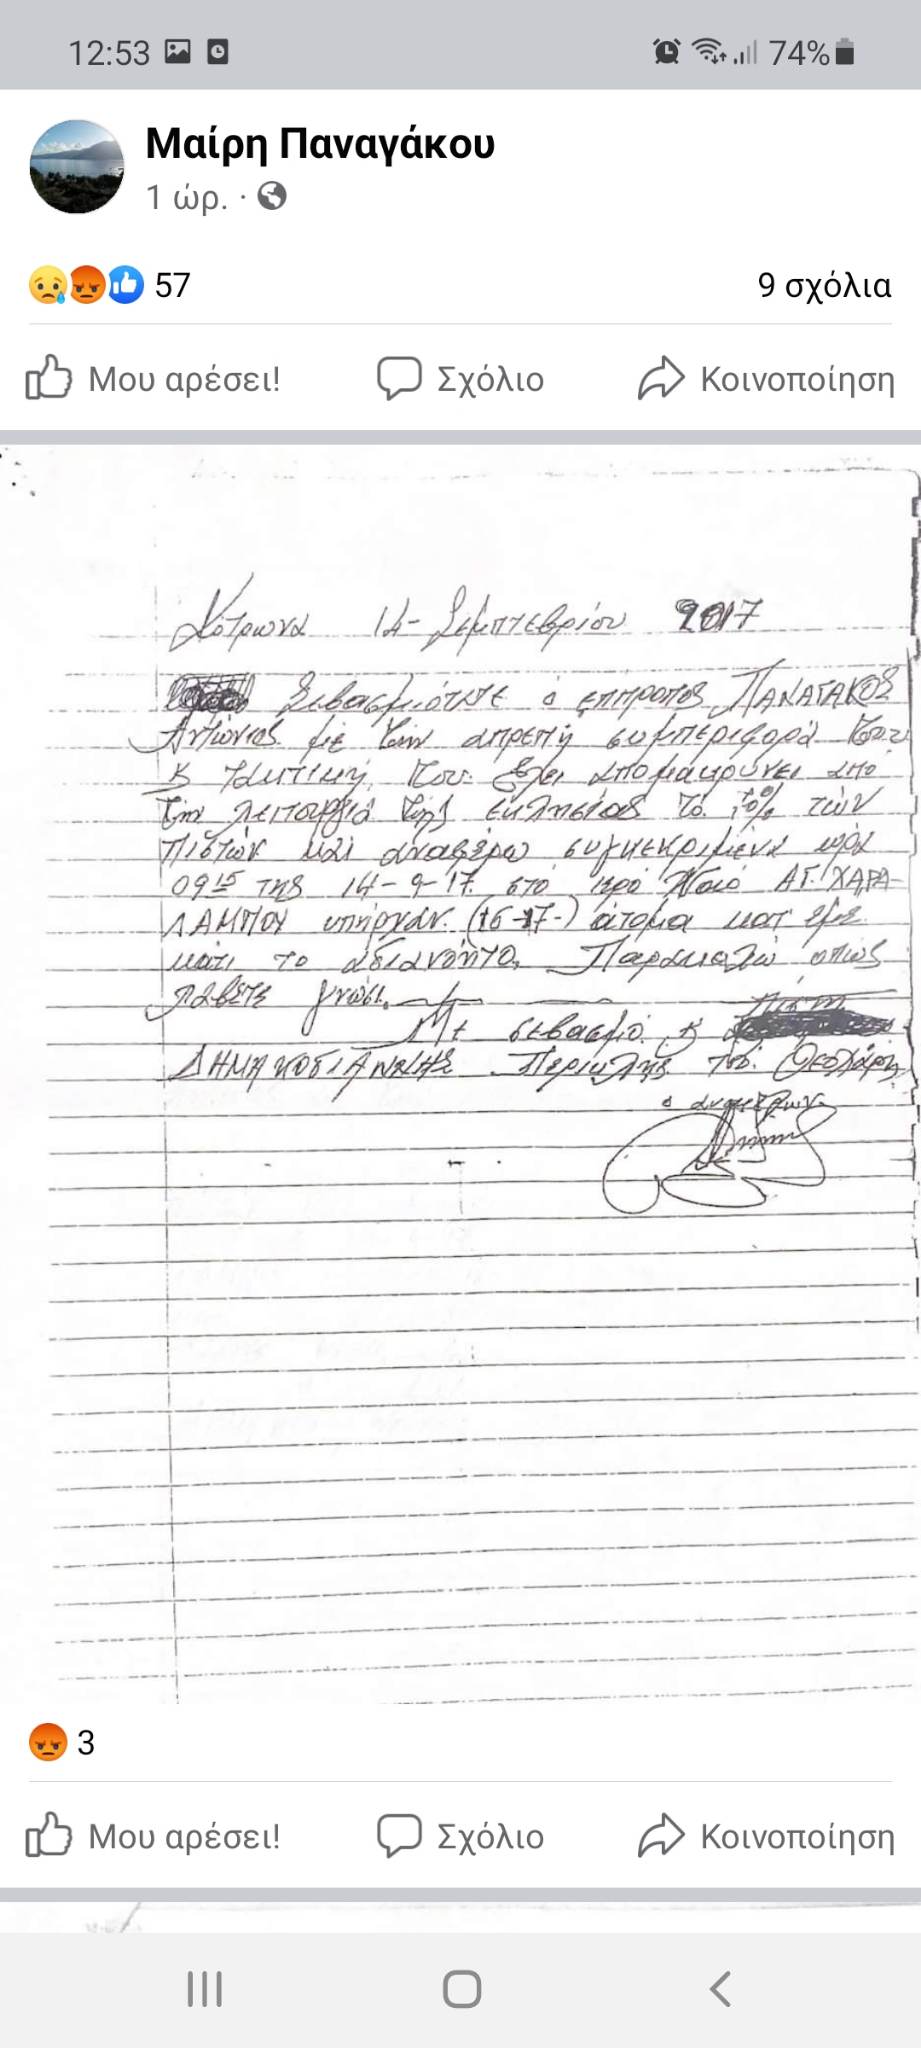 12:53 74%
Μαίρη Παναγάκου
1 ώρ. ·
57 9 σχόλια
Μου αρέσει! Σχόλιο Κοινοποίηση
Κότρωνα 14- Σεμπτεβρίου 2017
Σεβασμιότατε ο επίτροπος ΠΑΝΑΓΑΚΟΣ
Αντώνιος με τήν απρεπή συμπεριφορά του
του έχει απομακρύνει από
τήν λειτουργιά τής εκλησίας το 70% τών
πιστών και αναφέρω συγκεκριμένα ώρα
09 15 της 14-9-17 στό ιερό Ναό ΑΓ. ΧΑΡΑ-
ΛΑΜΠΟΥ υπήρχαν (15-17-) άτομα
κάτι το αδιανόητο. Παρακαλώ οπως
λάβετε γνώσι.
Με σεβασμό
ΔΗΜΑΚΟΓΙΑΝΝΗΣ Περικλής τού Θεοχάρη
ο αναφέρων
3
Μου αρέσει! Σχόλιο Κοινοποίηση